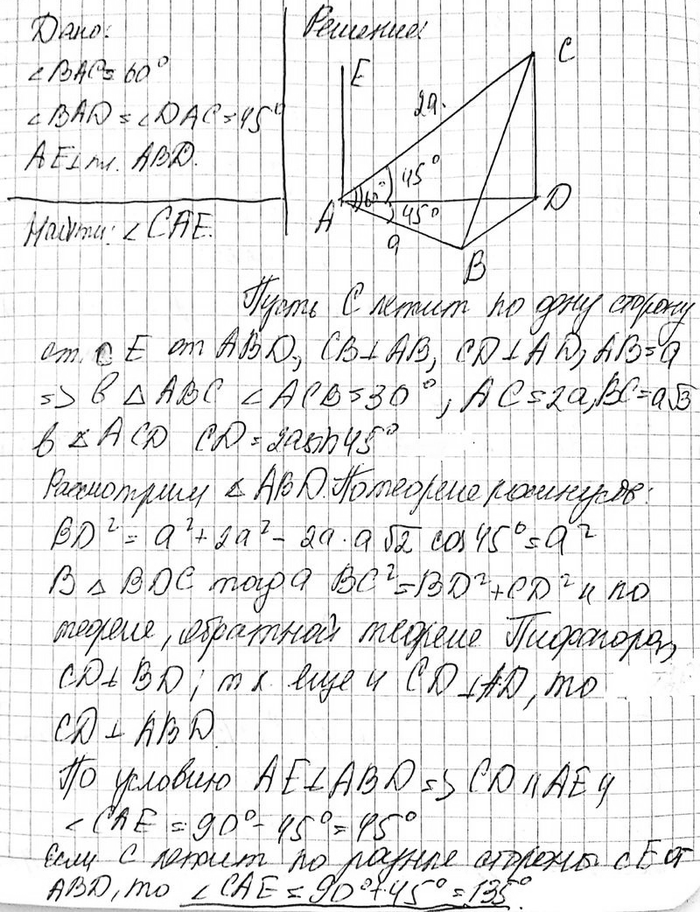 Дано:
∠BAC=60°
∠BAD=∠DAC=45°
AE⊥пл. ABD.
Найти: ∠CAE.
Решение:
E
C
2a
45°
60°
45°
A
D
a
B
Пусть C лежит по одну сторону
от с E от ABD, CB⊥AB, CD⊥AD, AB=a
=> в △ABC ∠ACB=30°, AC=2a, BC=a√3
в △ACD CD=2a sin45°
Рассмотрим △ABD. По теореме косинусов:
BD²=a²+2a²-2a·a√2 cos45°=a²
В △BDC тогда BC²=BD²+CD² и по
теореме, обратной теореме Пифагора,
CD⊥BD; т.к. еще и CD⊥AD, то
CD⊥ABD
По условию AE⊥ABD => CD||AE и
∠CAE=90°-45°=45°
Если C лежит по разные стороны с E от
ABD, то ∠CAE=90°+45°=135°